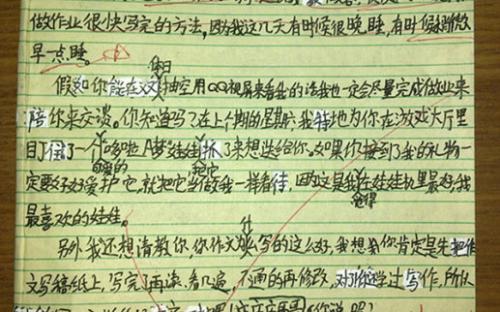 做作业很快写完的方法,因为我这几天有时候很晚睡,有时候稍微
早点睡。
假如你能在双休日抽空用QQ视屏来看我的话我也一定会尽量完成做业来
陪你来交谈。你知道吗?在上个期的星期六我特地为你在游戏大厅里
用 一个哆啦A梦娃娃抓了来想送给你。如果你接到了我的礼物一
定要好好爱护它,就把它当做我一样看待,因为这是我在娃娃机里最好我
可爱的 把它 觉得
最喜欢的娃娃。
另外我还想请教你,你作文为什么写的这么好,我想到你肯定是先把作
文写稿纸上,写完再读、看几遍,不通的再修改,对你 学过写作,所以
你说吧?